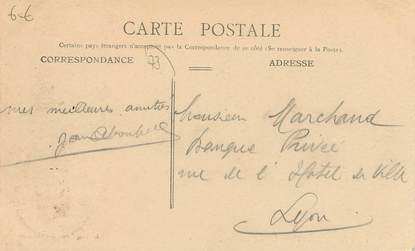 6-6
CARTE POSTALE
Certains pays étrangers n'acceptent pas la Correspondance de ce côté (Se renseigner à la Poste).
CORRESPONDANCE
73
ADRESSE
mes meilleures amitiés
Monsieur Marchand
Banque Privée
rue de l'Hotel de Ville
Lyon